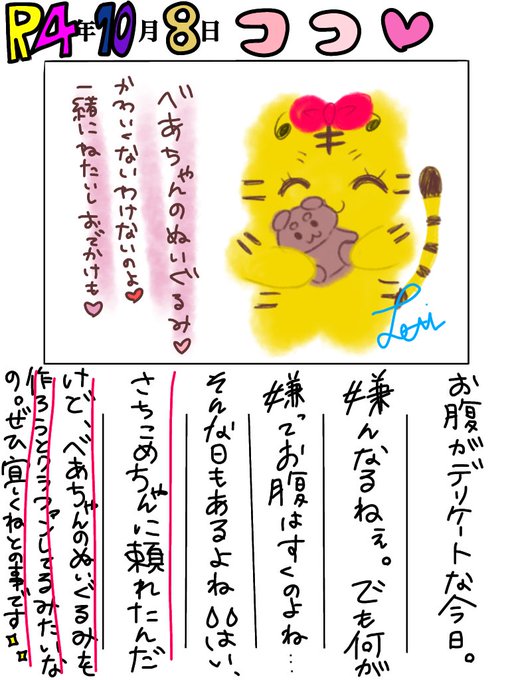 R4年10月8日 ココ♥
べあちゃんのぬいぐるみ♡
かわいくないわけないのよ♥
一緒にねたいしおでかけも♥
Lovi
お腹がデリケートな今日。
嫌んなるねぇ。でも何が
嫌ってお腹はすくのよね…
そんな日もあるよね💧💧はい、
さちこめちゃんに頼れたんだ
けど、べあちゃんのぬいぐるみを
作ろうとクラファンしてるみたいな
の。ぜひ宜しくねとの事です✨